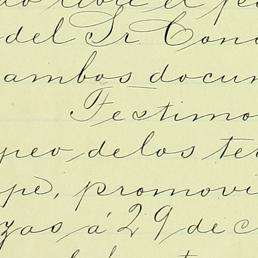 del Sr Cono
ambos docum
Testimo
peo delos ter
pe, promovi
zas á 29 de c